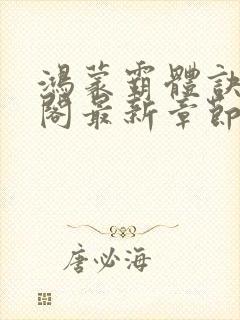 鴻蒙霸體訣
閣最新章節
唐必海